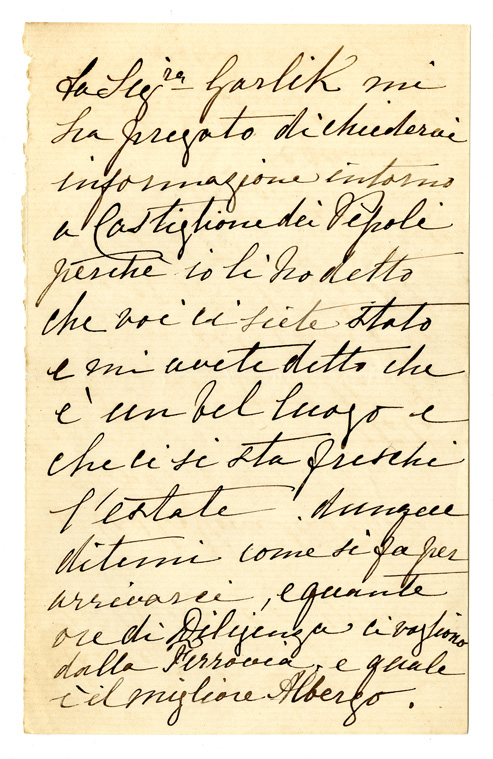 La Sig.ra Garlik mi
ha pregato di chiedervi
informazione intorno
a Castiglione dei Pepoli
perchè io li ho detto
che voi ci siete stato
e mi avete detto che
è un bel luogo e
che ci si sta freschi
l'estate. dunque
ditemi come si fa per
arrivarci, e quante
ore di Diligenza ci vogliono
dalla Ferrovia. e quale
è il migliore Albergo.